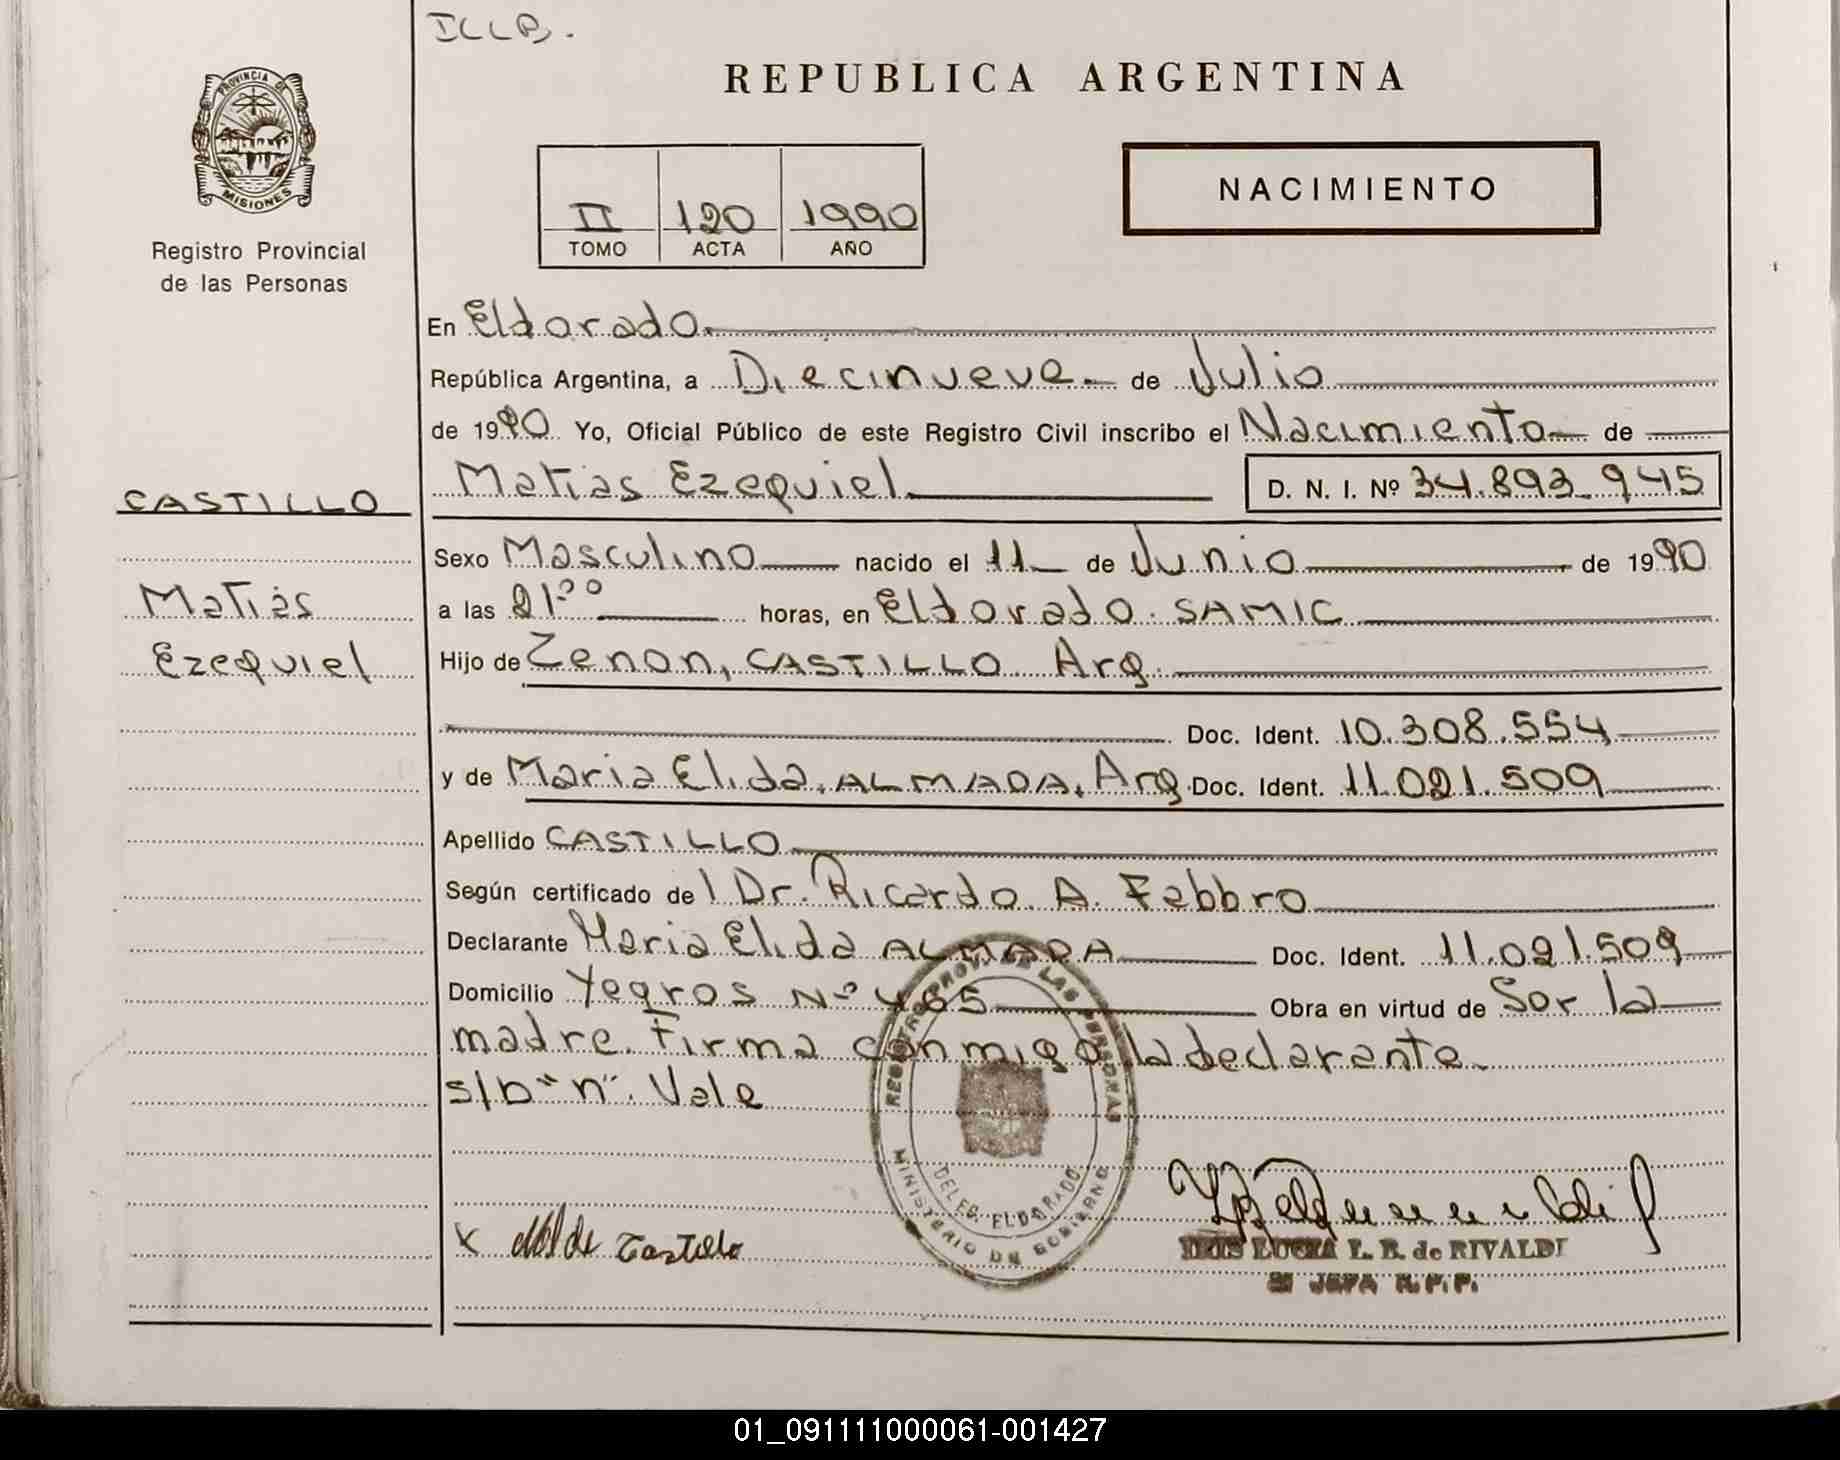 ILLB.
REPUBLICA ARGENTINA
PROVINCIA DE MISIONES
Registro Provincial
de las Personas
II 120 1990
TOMO ACTA AÑO
NACIMIENTO
En Eldorado
República Argentina, a Diecinueve de Julio
de 1990 Yo, Oficial Público de este Registro Civil inscribo el Nacimiento de
Matias Ezequiel D. N. I. Nº 34.893.945
CASTILLO
Matias
Ezequiel
Sexo Masculino nacido el 11 de Junio de 1990
a las 21.00 horas, en Eldorado. SAMIC
Hijo de Zenon, CASTILLO. Arg.
Doc. Ident. 10.308.554
y de Maria Elida, ALMADA, Arg. Doc. Ident. 11.021.509
Apellido CASTILLO
Según certificado de l Dr. Ricardo A. Fabbro
Declarante Maria Elida ALMADA Doc. Ident. 11.021.509
Domicilio Yegros Nº 465 Obra en virtud de Ser la
madre. Firma conmigo la declarante.
s/b "n". Vale
REGISTRO PROV. DE LAS PERSONAS
MINISTERIO DE GOBIERNO
DELEG. ELDORADO
x de Castillo
IRIS LUCIA L. B. de RIVALDI
JEFA R.P.P.
01_091111000061-001427